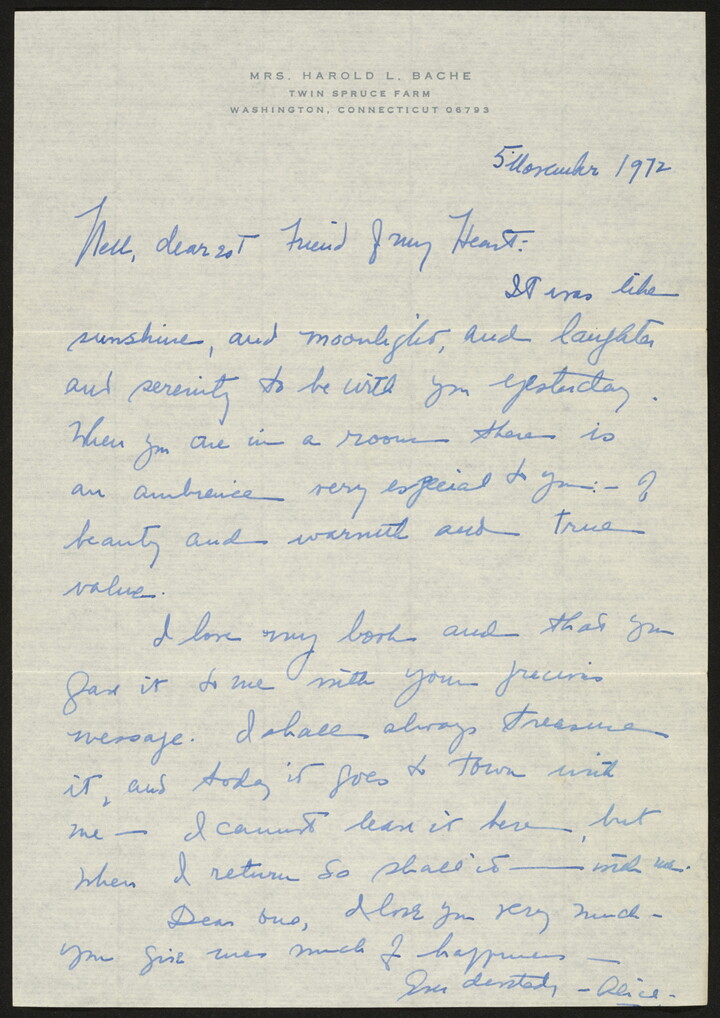 MRS. HAROLD L. BACHE
TWIN SPRUCE FARM
WASHINGTON, CONNECTICUT 06793
5 November 1972
Nell, dearest Friend of my Heart:
It was like
sunshine, and moonlight, and laughter
and serenity to be with you yesterday.
When you are in a room there is
an ambience very especial to you:- of
beauty and warmth and true
value.
I love my book and that you
gave it to me with your precious
message. I shall always treasure
it, and today it goes to town with
me — I cannot leave it here, but
when I return so shall it — with me.
Dear one, I love you very much -
you give me much of happiness —
Ever devotedly - Alice -